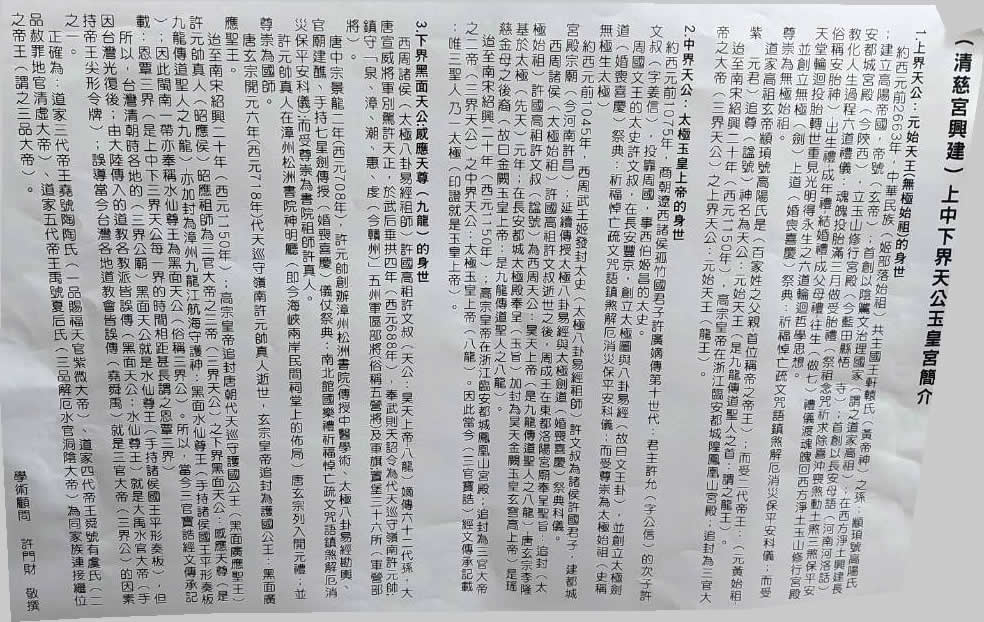 （清慈宮興建）上中下界天公玉皇宮簡介
1.上界天公：元始天王（無極始祖）的身世
約西元前2697年，中華民族（姬部落始祖）共主國王軒轅氏（黃帝神）之孫：顓頊號高陽氏
：建立高陽帝國，帝號（玄帝）：首創以陰騭文治理國家（謂之道家高祖）；在西方淨土興建長
安都城宮殿（今陝西），立玉山修行宮殿（今藍田縣悟　寺）；首創以長安母語（河南河洛話）
教化人生過程六道禮儀，魂魄投胎滿三月做受胎禮（祭祖唸咒祈求除喜沖喪煞動土煞三煞保平安
俗稱安胎神）、出生禮、成年禮、結婚禮、成父母禮、往生（做七）禮儀渡魂魄回西方淨土玉山修行宮殿
天堂輪迴投胎轉世重見光明得永生之六道輪迴哲學思想。
，並創立無極（劍）上道（婚喪喜慶）祭典：祈福悼亡疏文咒語鎮煞解厄消災保平安科儀；而受
尊崇為無極始祖。
道家高祖玄帝顓頊號高陽氏是（百家姓之父親首位稱帝之帝王）；而受二代帝王：（元黃始祖
紫　元君）追尊（諡號）神名為天公：元始天王（是九龍傳道聖人之首：謂之龍王）。
迨至南宋紹興二十年（西元1150年），高宗皇帝在浙江臨安都城隍鳳凰山宮殿：追封為三官大
帝之大帝（三界天公）之上界天公：元始天王（龍王）。
2.中界天公：太極玉皇上帝的身世
約西元前1075年，商朝遼西諸侯孤竹國君子許廣嫡傳第十世代：君主許允（字公信）的次子許
文叔（字姜信），投靠周國，事西伯姬昌的太史。
周國西伯姬昌文王的太史許文叔，在長安豐京；創立太極圖與八卦易經（故曰文王卦），並創立太極劍
道（婚喪喜慶）祭典：祈福悼亡疏文咒語鎮煞解厄消災保平安科儀；而受尊崇為太極始祖（史稱
無極生太極）。
約西元前1045年，西周武王姬發封太史（太極八卦易經祖師）許文叔為諸侯許國君子，建都城
宮殿宗廟（今河南許昌）；延續傳授太極八卦易經與太極劍道（婚喪喜慶）祭典科儀。
西周諸侯（太極始祖）許國高祖許文叔逝世之後，周成王在東都洛陽宮廟奉呈聖旨：追封（太
極始祖）許國高祖許文叔（諡號）為西周天公：昊天上帝（是九龍傳道聖人之八龍）。唐玄宗李隆
基於太極（先天）元年；在長安都城太極殿奉呈（玉旨）加封為昊天金闕玉皇玄窮高上帝）是瑤
慈金母之後裔（故曰金闕玉皇上帝：是九龍傳道聖人之八龍）。
迨至南宋紹興二十年（西元1150年）；高宗皇帝在浙江臨安都城鳳凰山宮殿：追封為三官大帝
之二帝（三界天公）之中界天公：太極玉皇上帝（八龍）。因此當今（三官寶誥）經文傳承記載
：唯三聖人乃一　太極（印證就是玉皇上帝）。
3.下界黑面天公：感應天尊（九龍）的身世
西周諸侯（太極八卦易經祖師）許國高祖許文叔（天公：昊天上帝八龍）嫡傳六十二代孫，大
唐宣威將軍別騰許天正，於武后垂拱四年（西元688年），奉武則天詔令為代天巡守嶺南許元帥
鎮守「泉、漳、潮、惠、虔（今贛州）」五州軍區部將（俗稱五營將）及軍旗置堡三十六所（軍營部
將）。
唐中宗景龍二年（西元708年），許元帥創辦漳州松洲書院（傳授中醫學術、太極八卦易經勘輿、
官廟建醮、手持七星劍道授（婚喪喜慶）儀仗祭典；南北館國樂禮祈福悼亡疏文咒語鎮煞解厄消
災保平安科儀；而受尊崇為書院祖師許真人。
許元帥真人在漳州松洲書院神明廳（即今海峽兩岸民間祠堂上的佈局）唐玄宗列入開元禮；並
尊崇為國師。
唐玄宗開元六年（西元718年）代天巡守嶺南許元帥真人逝世，玄宗皇帝追封為護國公王：黑面廣
應聖王。
迨至南宋紹興二十年（西元1150年）；高宗皇帝追封唐朝代天巡守護國公王（黑面廣應聖王）
許元帥真人（昭應侯）昭應祖師為三官大帝之三帝（三界天公）之下界黑面天公：感應天尊（是
九龍傳道聖人之九龍）亦加封為漳州九龍江航海守護神：黑面水仙尊王（手持諸侯國王平形奏板
）；因此閩南一帶亦奉稱水仙尊王為黑面天公（俗稱三界公）。所以，當今三官寶誥經文傳承記
載：恩覃三界（是上中下三界天公每一界的時間相距甚長謂之恩覃三界）。
所以，台灣清朝時各地的（三界公廟）黑面天公就是水仙尊王（手持諸侯國王平形奏板），但
因台灣光復後；由大陸傳入的道教各教派皆誤傳（黑面天公：水仙尊王）就是大禹水官大帝（手
持帝王尖形令牌）；誤導當今台灣各地道教教會皆誤傳（堯舜禹）就是三官大帝（三界公）的因素
之一。
正確為：道家三代帝王堯號陶氏（一品賜福天官紫微大帝）、道家四代帝王舜號有虞氏（二
品赦罪地官清虛大帝）、道家五代帝王禹號夏后氏（三品解厄水官洞陰大帝）為同家族連接繼位
之帝王（謂之三品大帝）。
學術顧問　許門財　敬撰